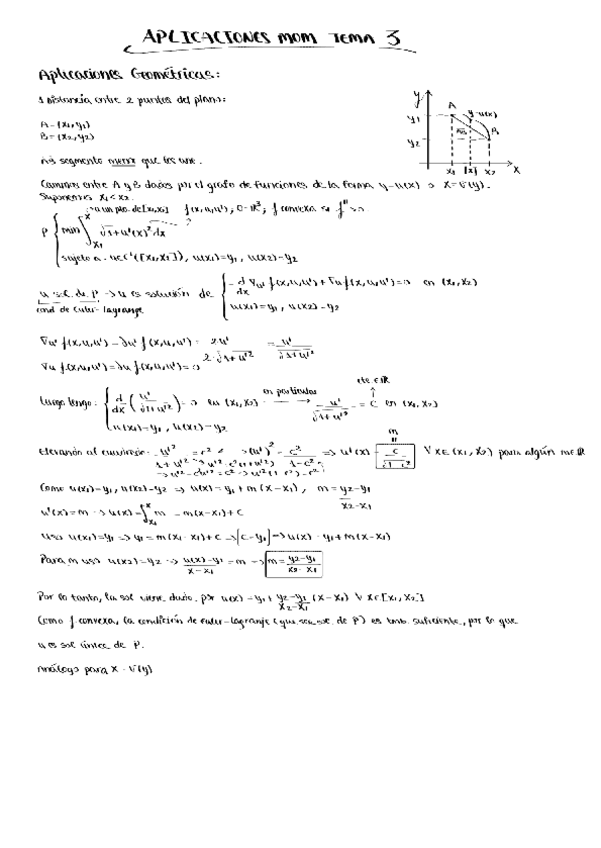 APLICACIONES MOM TEMA 3
Aplicaciones Geométricas:
1. Distancia entre 2 puntos del plano:
A=(x₁,y₁)
B=(x₂,y₂)
y
y₁
y₂
A
y=u(x)
B
x₁ [x] x₂ X
segmento menor que los une.
Caminos entre A y B dados por el grafo de funciones de la forma y=u(x) o x=v(y).
Suponemos x₁<x₂.
f(x,u,u'); f convexa
P { min ∫ √1+u'(x)² dx
sujeto a: u∈C¹([x₁,x₂]), u(x₁)=y₁, u(x₂)=y₂
u sol. de P → u es solución de { -d/dx ∇u' f(x,u,u')+∇u f(x,u,u')=0 en (x₁,x₂)
cond de Euler-Lagrange u(x₁)=y₁, u(x₂)=y₂
∇u' f(x,u,u')=∂u' f(x,u,u')= 2u' / 2·√1+u'² = u' / √1+u'²
∇u f(x,u,u')=∂u f(x,u,u')=0
cte ∈ℝ
Luego tengo: { d/dx (u'/√1+u'²)=0 en (x₁,x₂) en particular → u'/√1+u'² = c en (x₁,x₂)
u(x₁)=y₁, u(x₂)=y₂
Elevando al cuadrado: u'²/1+u'² = c² (u')² = c²/1-c² ⇒ u'(x) = c/√1-c² = m ∀x∈(x₁,x₂) para algún m∈ℝ
Como u(x₁)=y₁, u(x₂)=y₂ ⇒ u(x)=y₁+m(x-x₁), m= y₂-y₁ / x₂-x₁
u'(x)=m → u(x)=∫ m = m(x-x₁)+c
Uso u(x₁)=y₁ → y₁=m(x₁-x₁)+c → c=y₁ → u(x)=y₁+m(x-x₁)
Para m uso u(x₂)=y₂ → u(x)-y₁ / x-x₁ = m → m= y₂-y₁ / x₂-x₁
Por lo tanto, la sol viene dada por u(x)=y₁+ y₂-y₁ / x₂-x₁ (x-x₁) ∀x∈[x₁,x₂]
Como f convexa, la condición de Euler-Lagrange (que sea sol. de P) es tmb. suficiente, por lo que
u es sol única de P.
Análogo para x=v(y)